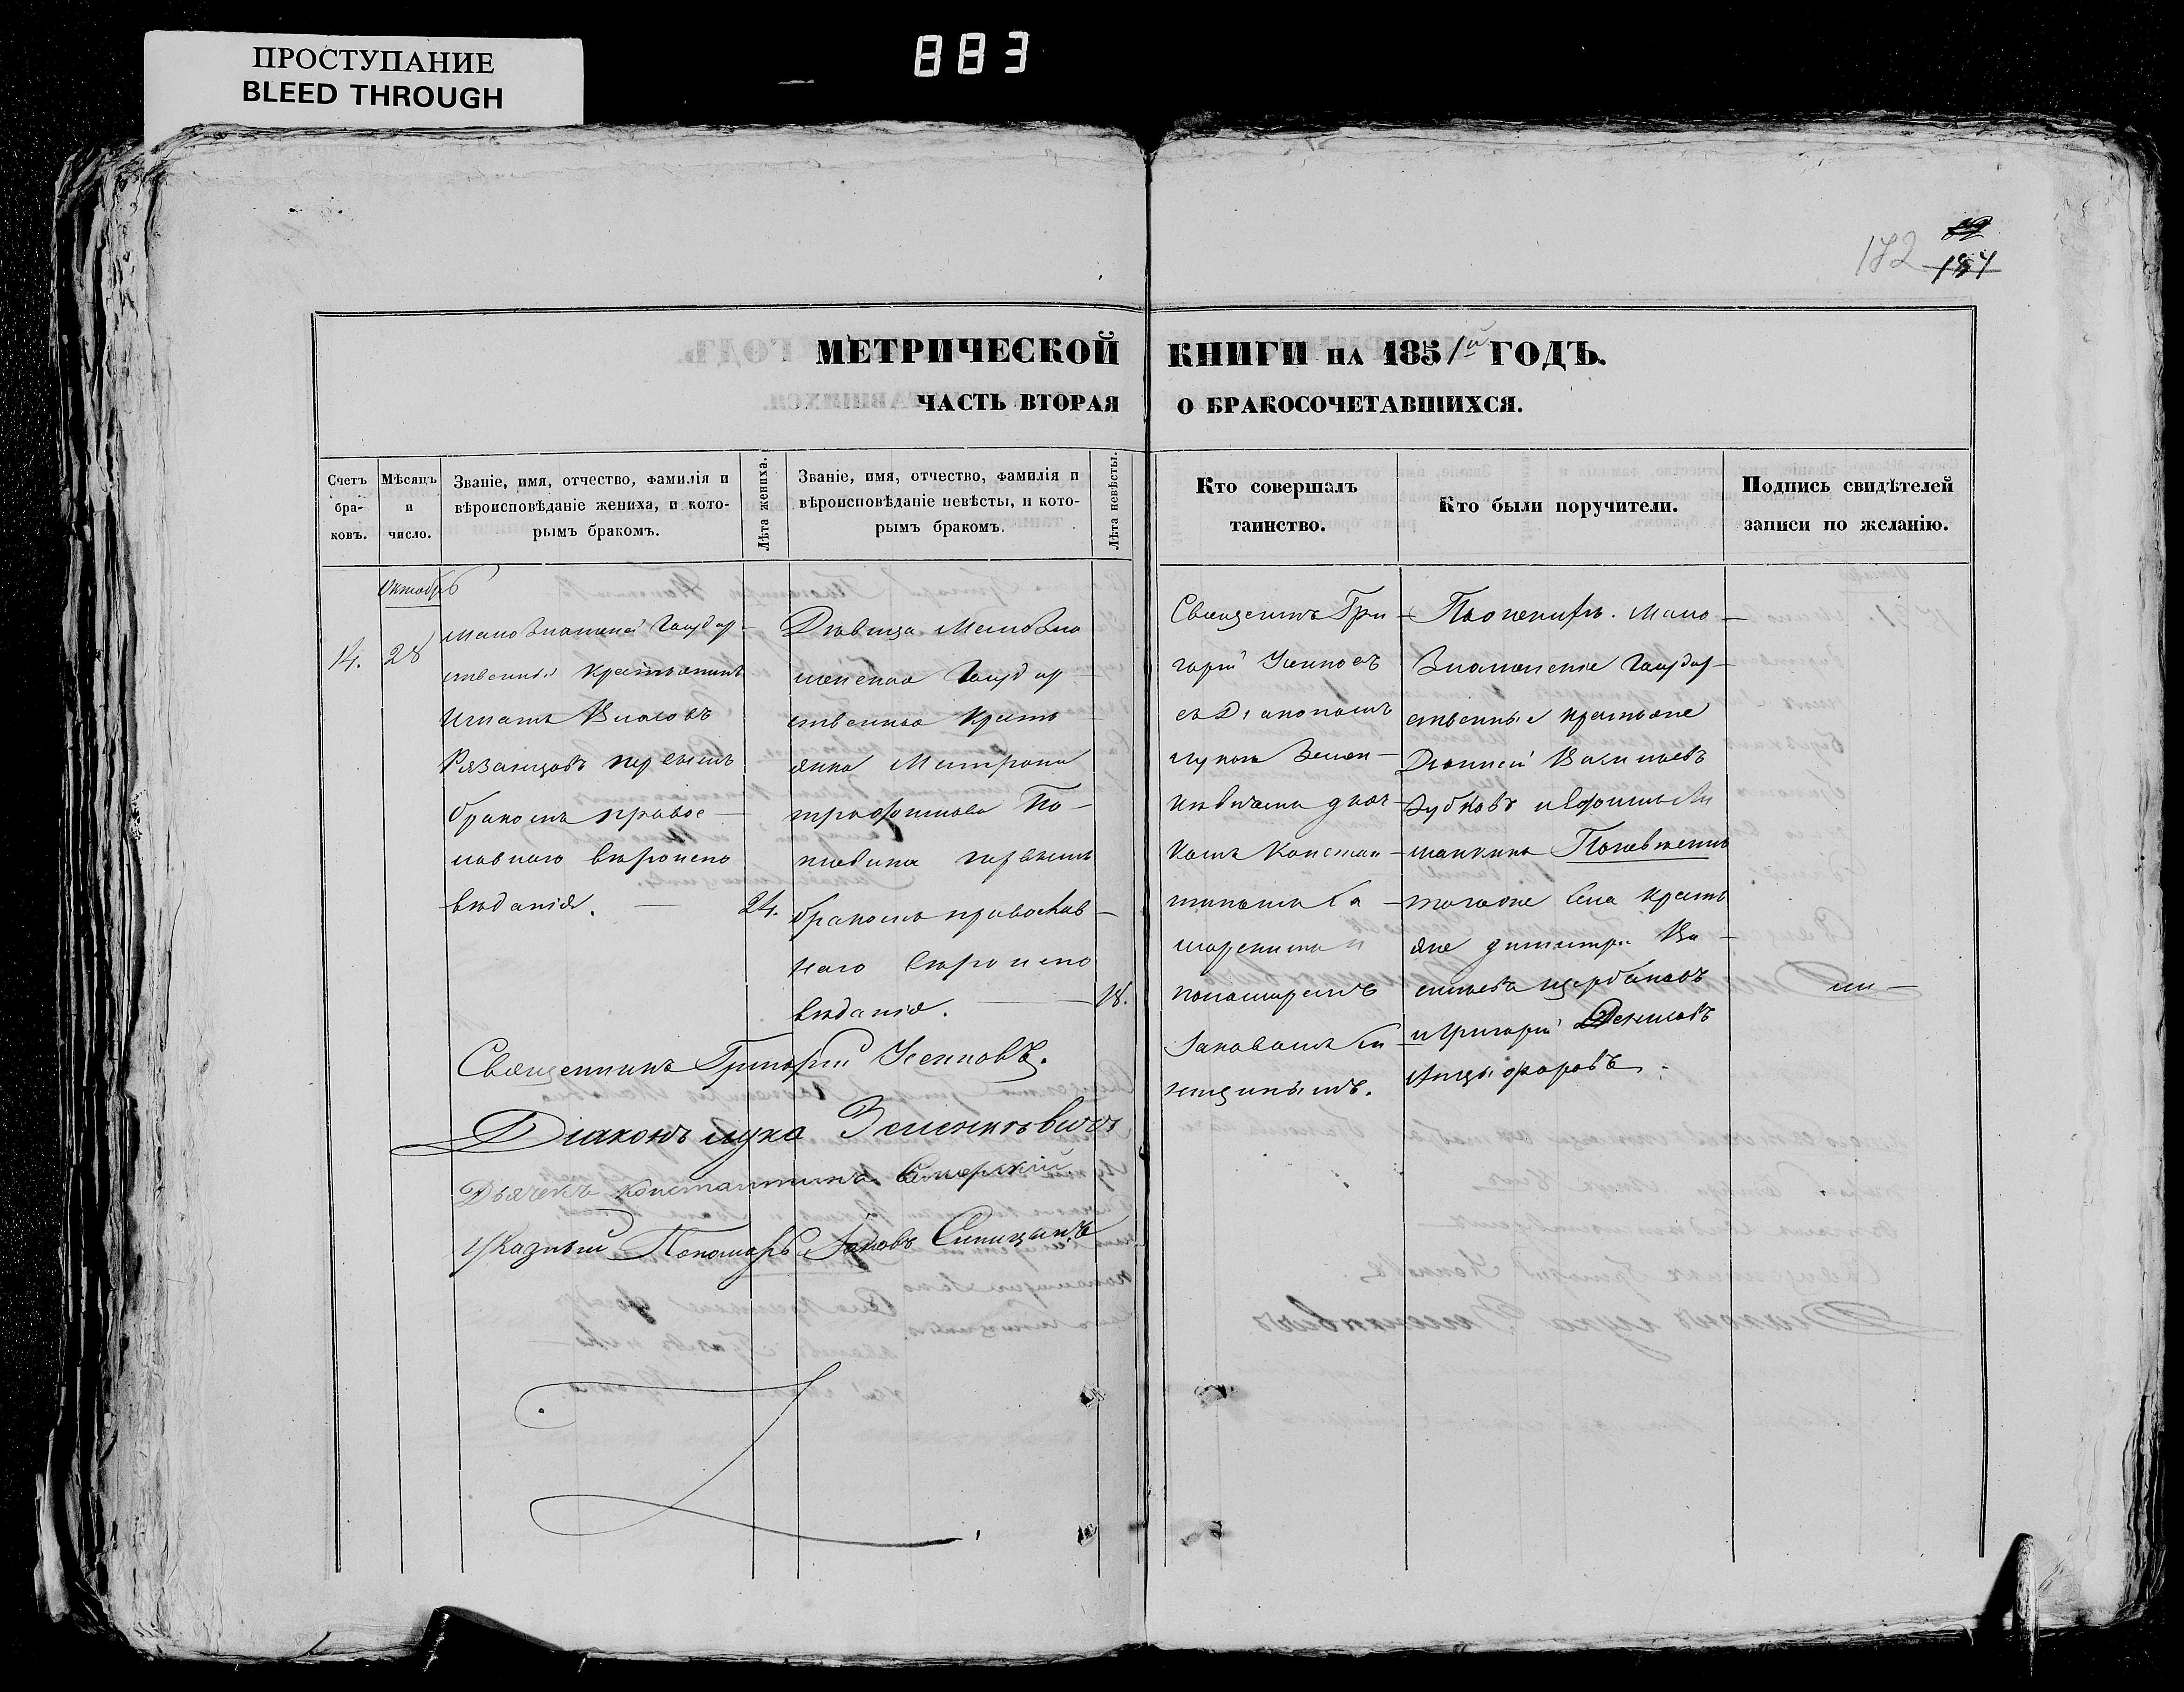 ПРОСТУПАНИЕ
BLEED THROUGH
883
172
184
МЕТРИЧЕСКОЙ КНИГИ НА 1851й ГОДЪ.
ЧАСТЬ ВТОРАЯ О БРАКОСОЧЕТАВШИХСЯ.
Счетъ
бра-
ковъ.
Мѣсяцъ
и
число.
Званіе, имя, отчество, фамилія и
вѣроисповѣданіе жениха, и кото-
рымъ бракомъ.
Лѣта жениха.
Званіе, имя, отчество, фамилія и
вѣроисповѣданіе невѣсты, и кото-
рымъ бракомъ.
Лѣта невѣсты.
Кто совершалъ
таинство.
Кто были поручители.
Подпись свидѣтелей
записи по желанію.
Октябрь
14.
28
Малознаменской Государ-
ственный крестьянинъ
Игнатъ Власовъ
Рязанцовъ первымъ
бракомъ правос-
лавнаго вѣроиспо
вѣданія.
24.
Дѣвица Малозна
менская Государ-
ственная кресть
янка Матрона
Трофимова По-
первымъ
бракомъ православ-
наго вѣроиспо
вѣданія.
18.
Священникъ Гри-
горій
съ Діакономъ
Лукою Земен-
дьяч-
комъ Констан-
тиномъ Са-
марскимъ и
пономаремъ
Іаковомъ Си-
ницынымъ.
По женихѣ. Мало-
знаменскіе Государ-
ственные крестьяне
Васильевъ
Зубковъ и Ефимъ
По невѣстѣ
тогоже села кресть
яне Димитрій Ва-
сильевъ Щербаковъ
и Григорій Денисовъ
Анцыфоровъ.
Священникъ Григорій
Діаконъ Лука
Дьячекъ Константинъ Самарскій
Указный Пономарь Іаковъ Синицынъ